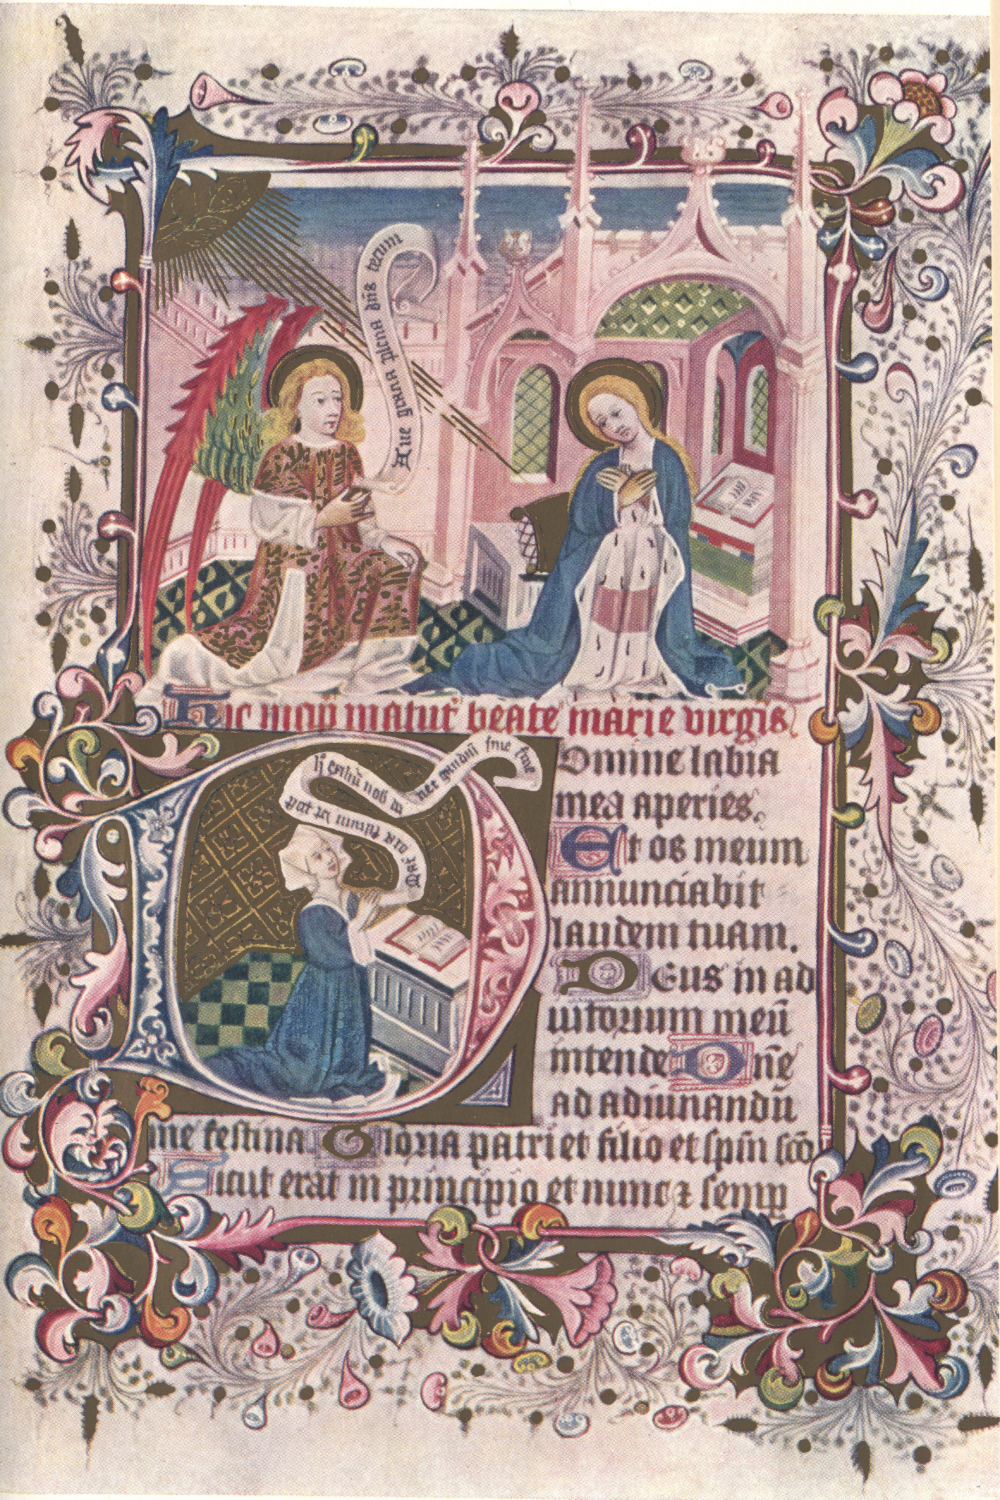 Aue gracia plena dn̄s tecum
Hic incip̄ matut̄ beate marie virgis.
Domine labia
mea aperies.
Et os meum
annunciabit
laudem tuam.
Deus in ad
iutorium meū
intende Dn̄e
ad adiuuandū
me festina Gloria patri et filio et spīu sc̄o
Sicut erat in principio et nunc ⁊ semp